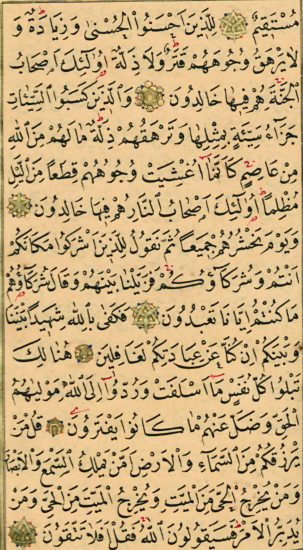 مُسْتَقِيمٍ لِلَّذِينَ اَحْسَنُوا الْحُسْنٰى وَزِيَادَةٌ وَ
لَا يَرْهَقُ وُجُوهَهُمْ قَتَرٌ وَلَا ذِلَّةٌ اُولٰٓئِكَ اَصْحَابُ
الْجَنَّةِ هُمْ فِيهَا خَالِدُونَ وَالَّذِينَ كَسَبُوا السَّيِّئَاتِ
جَزَٓاءُ سَيِّئَةٍ بِمِثْلِهَا وَتَرْهَقُهُمْ ذِلَّةٌ مَا لَهُمْ مِنَ اللّٰهِ
مِنْ عَاصِمٍ كَاَنَّمَٓا اُغْشِيَتْ وُجُوهُهُمْ قِطَعًا مِنَ الَّيْلِ
مُظْلِمًا اُولٰٓئِكَ اَصْحَابُ النَّارِ هُمْ فِيهَا خَالِدُونَ
وَيَوْمَ نَحْشُرُهُمْ جَمِيعًا ثُمَّ نَقُولُ لِلَّذِينَ اَشْرَكُوا مَكَانَكُمْ
اَنْتُمْ وَشُرَكَٓاؤُ۬كُمْ فَزَيَّلْنَا بَيْنَهُمْ وَقَالَ شُرَكَٓاؤُ۬هُمْ
مَا كُنْتُمْ اِيَّانَا تَعْبُدُونَ فَكَفٰى بِاللّٰهِ شَهِيدًا بَيْنَنَا
وَبَيْنَكُمْ اِنْ كُنَّا عَنْ عِبَادَتِكُمْ لَغَافِلِينَ هُنَالِكَ
تَبْلُوا كُلُّ نَفْسٍ مَٓا اَسْلَفَتْ وَرُدُّٓوا اِلَى اللّٰهِ مَوْلٰيهُمُ
الْحَقِّ وَضَلَّ عَنْهُمْ مَا كَانُوا يَفْتَرُونَ قُلْ مَنْ
يَرْزُقُكُمْ مِنَ السَّمَٓاءِ وَالْاَرْضِ اَمَّنْ يَمْلِكُ السَّمْعَ وَالْاَبْصَارَ
وَمَنْ يُخْرِجُ الْحَيَّ مِنَ الْمَيِّتِ وَيُخْرِجُ الْمَيِّتَ مِنَ الْحَيِّ وَمَنْ
يُدَبِّرُ الْاَمْرَ فَسَيَقُولُونَ اللّٰهُ فَقُلْ اَفَلَا تَتَّقُونَ